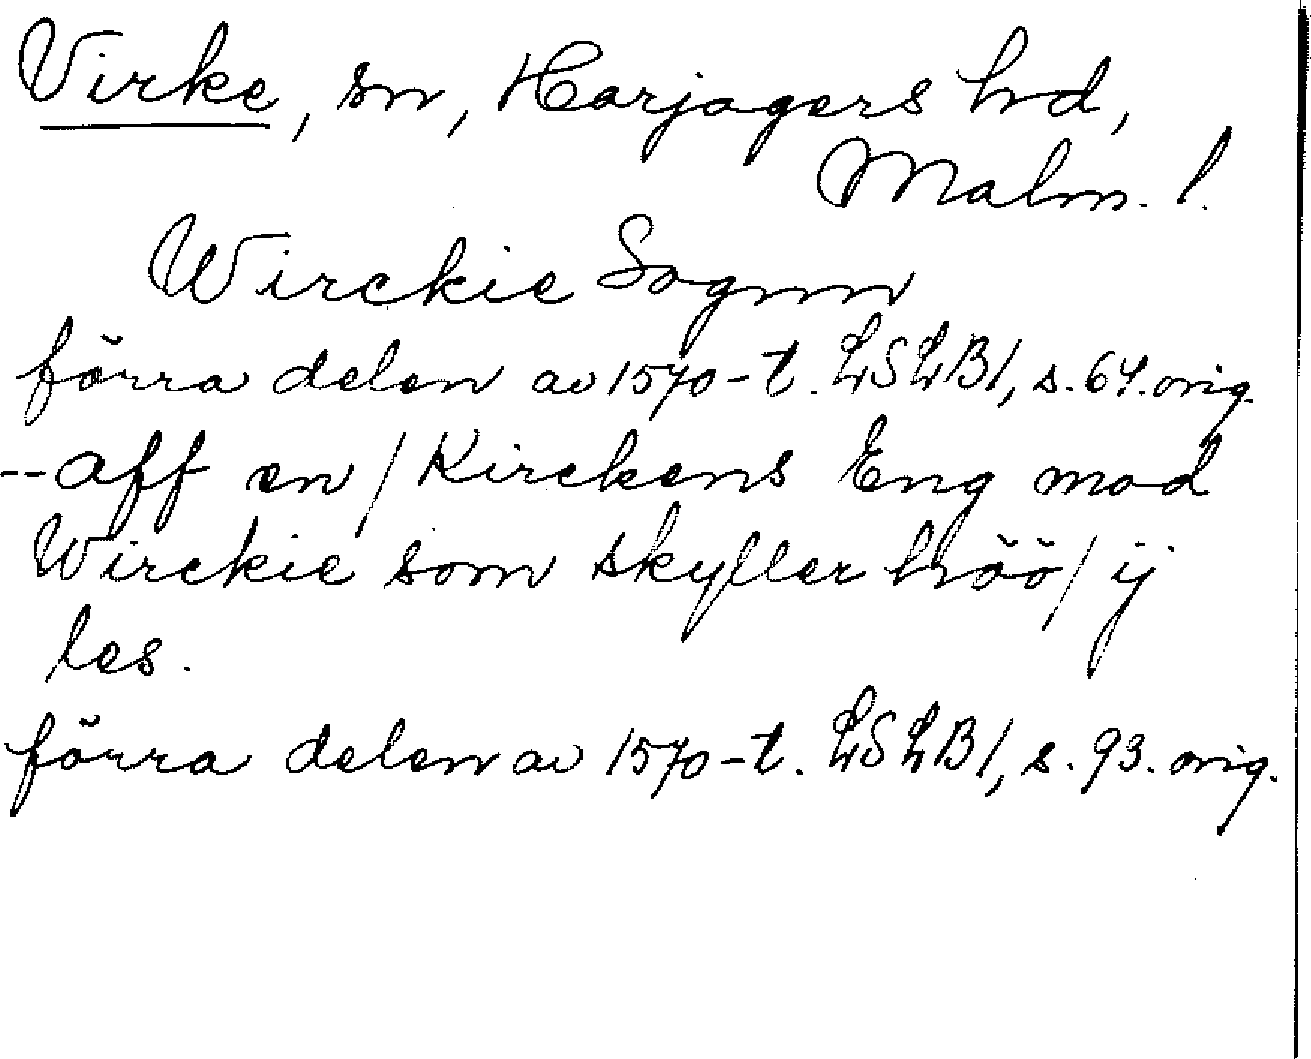 Virke, sn, Harjagers hd,
Malm. l.
Wirckie Sognn
förra delen av 1570-t. LSLB1, s. 64. orig.
-- aff en / Kirckens Eng mod
Wirckie som skyller höö / ij
les.
förra delen av 1570-t. LSLB1, s. 93. orig.